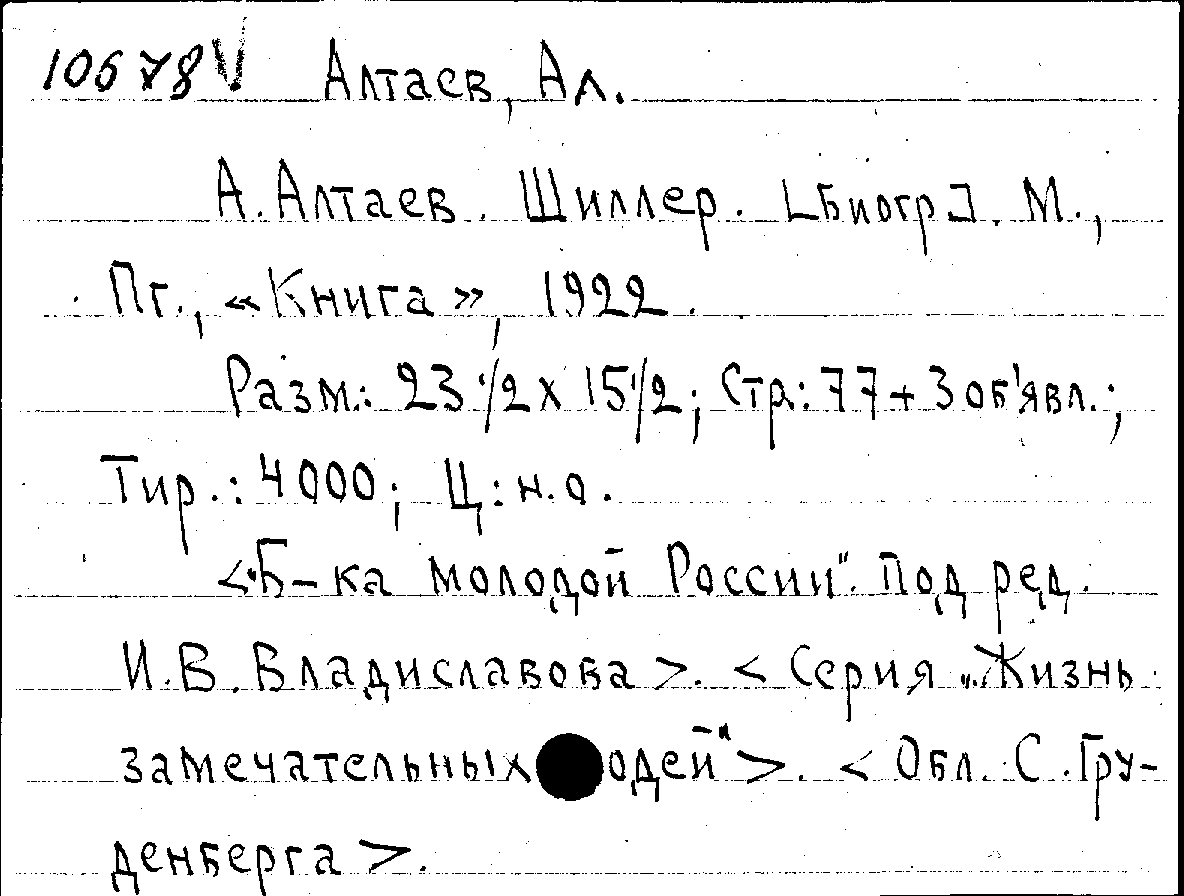 10678 V Алтаев, Ал.
А. Алтаев. Шиллер. [Биогр]. М.,
Пг., «Книга», 1922.
Разм.: 23 1/2 х 15 1/2; Стр.: 77 + 3 об'явл.;
Тир.: 4000; Ц: н.о.
<"Б-ка молодой России". Под ред.
И.В. Владиславова>. <Серия "Жизнь
замечательных одей">. <Обл. С. Гру-
денберга>.